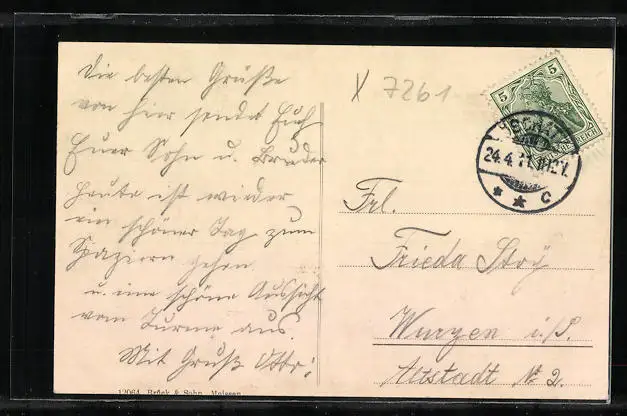 Die besten Grüße
von hier sendet Euch
Euer Sohn u. Bruder
Heute ist wieder
ein schöner Tag zum
Spazieren gehen
u. eine schöne Aussicht
vom Turme aus.
Mit Gruß Otto.
X 7261
5 5
REICH
OSCHATZ
24.4.11.
* * c
Frl.
Frieda
Wurzen i/S.
Altstadt № 2.
12064 Brück & Sohn, Meissen